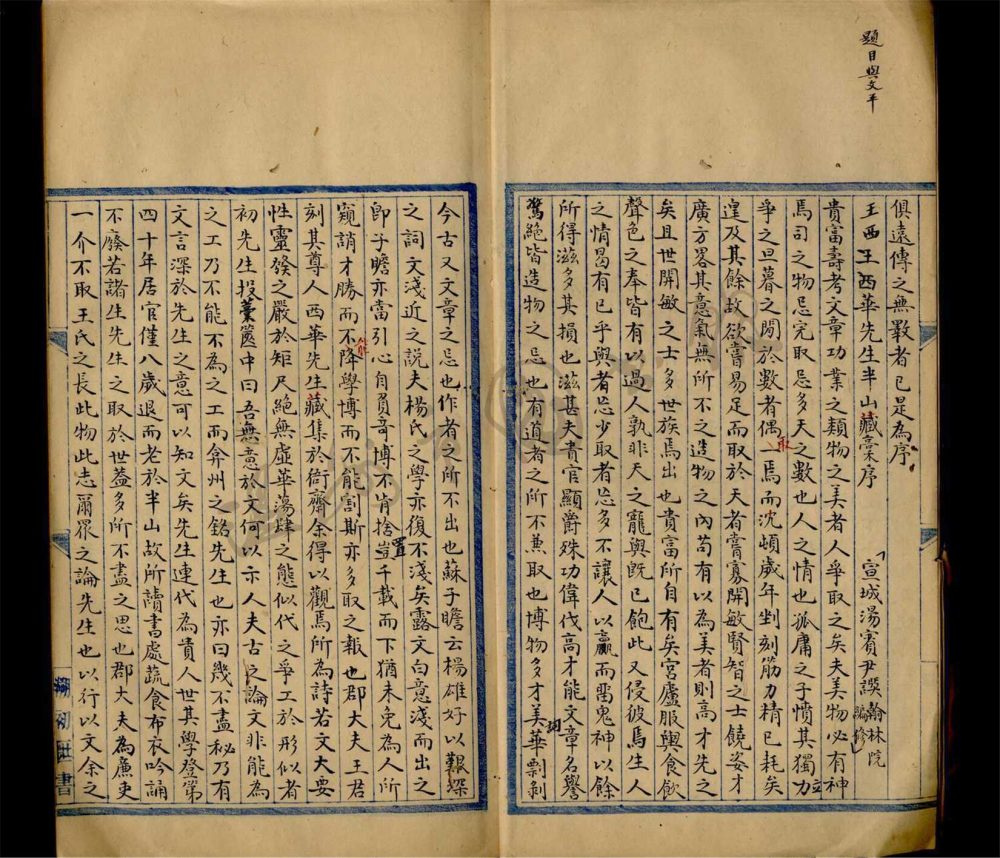 題目與文平
俱遠傳之無斁者已是為序
王西王西華先生半山藏稾序 「宣城湯賓尹譔 翰林院編修」
貴富壽考文章功業之類物之美者人爭取之矣夫美物必有神
焉司之物忌完取忌多天之數也人之情也孤庸之子憤其獨力立
爭之旦暮之間於數者偶取一焉而沈頓歲年剉刻筋力精已耗矣
遑及其餘故欲嘗易足而取於天者嘗寡開敏賢智之士饒姿才
廣方畧其意氣無所不之造物之內苟有以為美者則高才先之
矣且世開敏之士多世族焉出也貴富所自有矣宮廬服輿食飲
聲色之奉皆有以過人孰非天之寵與既已飽此又侵彼焉生人
之情曷有已乎與者忌少取者忌多不讓人以贏而畱鬼神以餘
所得滋多其損也滋甚夫貴官顯爵殊功偉伐高才能文章名譽
驚絕皆造物之忌也有道者之所不兼取也博物多才美華詞剽剥
今古又文章之忌也作者之所不出也蘇子瞻云楊雄好以艱深
之詞文淺近之説夫楊氏之學亦復不淺矣露文白意淺而出之
卽子瞻亦當引心自負奇博不肯捨置豈千載而下猶未免為人所
窺誚才勝而不能降學博而不能割斯亦多取之報也郡大夫王君
刻其尊人西華先生藏集於衙齋余得以觀焉所為詩若文大要
性靈發之嚴於矩尺絕無虛華蕩肆之態似代之爭工於形似者
初先生投藁篋中曰吾無意於文何以示人夫古之論文非能為
之工乃不能不為之工而弇州之銘先生也亦曰幾不盡秘乃有
文言深於先生之意可以知文矣先生連代為貴人世其學登第
四十年居官僅八歲退而老於半山故所讀書處蔬食布衣吟誦
不廢若諸生先生之取於世蓋多所不盡之思也郡大夫為廉吏
一介不取王氏之長此物此志爾眾之論先生也以行以文余之